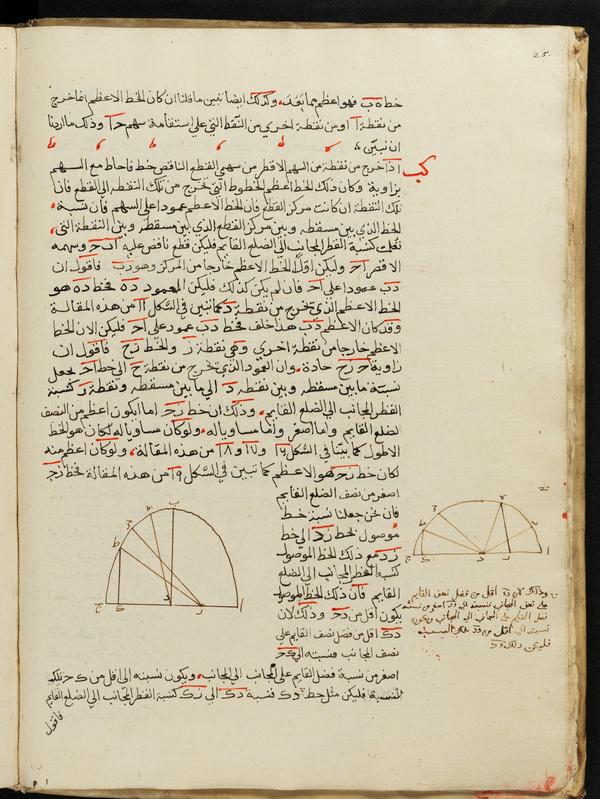 خط ه ب فهو اعظم مما بعد، وكذلك ايضا نبين ما قلنا ان كان الخط الاعظم انما خرج
من نقطة ا او من نقطة اخرى من النقط التي على استقامة سهم ح ا وذلك ما اردنا
ان نبين
كب
اذا خرج من نقطة من السهم الاقصر من سهمي القطع الناقص خط فاحاط مع السهم
بزاوية وكان ذلك الخط اعظم الخطوط التي تخرج من تلك النقطه الى القطع فان
تلك النقطة ان كانت مركز القطع فان الخط الاعظم عمودا على السهم فان نسبة
الخط الذي بين مسقطه وبين مركز القطع الذي بين مسقطه وبين النقطة التي
كنسبة القطر المجانب الى الضلع القايم فليكن قطع ناقص عليه ا ب ح وسهمه
الاقصر ا ح وليكن اولا الخط الاعظم خارجا من المركز وهو د ب فاقول ان
د ب عمودا على ا ح فان لم يكن كذلك فليكن العمود د ه فخط د ه هو
الخط الاعظم الذي يخرج من نقطة د كما تبين في الشكل ١١ من هذه المقالة
وقد كان الاعظم د ب هذا خلف فخط د ب عمود على ا ح فليكن الان الخط
الاعظم خارجا من نقطة اخرى وهي نقطة ز والخط ز ح فاقول ان
زاوية ح ز ح حادة وان العمود الذي يخرج من نقطة ح الى خط ا ح يجعل
نسبة ما بين مسقطه وبين نقطة د الى ما بين مسقطه ونقطة ز كنسبة
القطر المجانب الى الضلع القايم وذلك ان خط ز ح اما يكون اعظم من النصف
الضلع القايم واما اصغر واما مساويا له ولو كان مساويا له لكان هو الخط
الاطول كما بينا في الشكل ١٦ و١٧ و١٨ من هذه المقالة ولو كان اعظم منه
لكان خط ز ح هو الاعظم كما تبين في الشكل ١٩ من هذه المقالة فخط ز ح
اصغر من نصف الضلع القايم
فان نحن جعلنا نسبة خط
موصول بخط ز د الى خط
ز د مع ذلك الخط الموصول
كنسبة القطر المجانب الى الضلع
القايم فان ذلك الخط الموصول
يكون اقل من د ح وذلك لان
د ك اقل من فضل نصف القايم على
نصف المجانب فنسبته الى ك ح
اصغر من نسبة فضل القايم على المجانب الى المجانب ويكون نسبته الى اقل من ك ح تلك
النسبة فليكن مثل خط و ك فنسبة د ك الى ز ك كنسبة القطر المجانب الى الضلع القايم
فاقول
وذلك لان د ز اقل من فضل نصف القايم
على نصف المجانب فنسبته الى ز ح اصغر من نسبة
فضل القايم على المجانب الى المجانب ويكون
نسبته الى اقل من ز ح تلك النسبة
فليكن ذلك ز ك